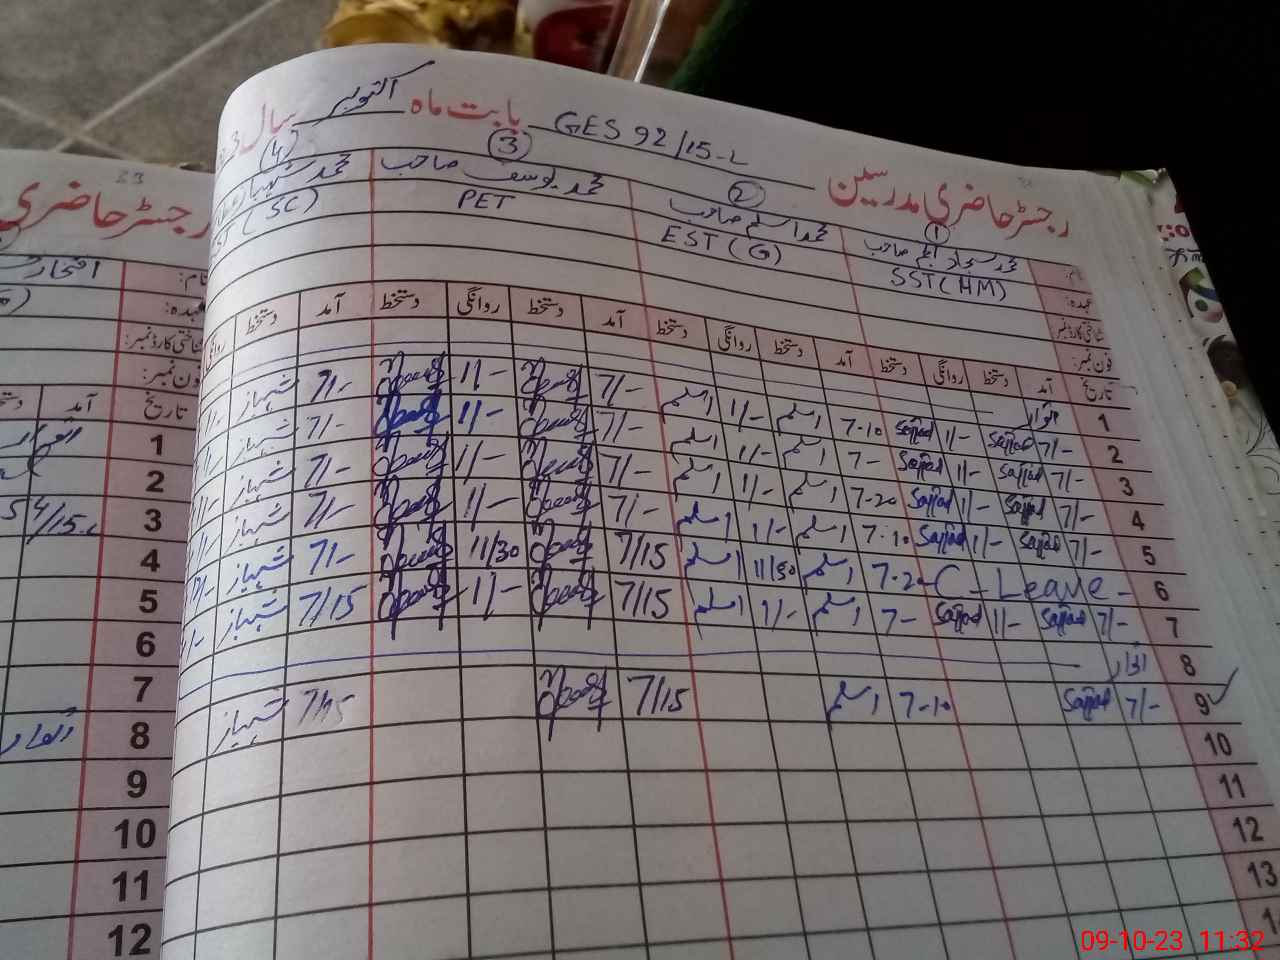 رجسٹر حاضری مدرسین GES 92/15-L بابت ماہ اکتوبر سال
① ② ③ ④
نام: محمد سجاد انجم صاحب محمد اسلم صاحب محمد یوسف صاحب محمد شہباز
عہدہ: SST(HM) EST(G) PET EST(SC)
شناختی کارڈ نمبر:
فون نمبر:
تاریخ آمد دستخط روانگی دستخط آمد دستخط روانگی دستخط آمد دستخط روانگی دستخط آمد دستخط روانگی
1 اتوار
2 7/- Sajjad 11/- Sajjad 7-10 اسلم 11/- اسلم 7/- 11/- 7/- شہباز
3 7/- Sajjad 11/- Sajjad 7- اسلم 11/- اسلم 7/- 11/- 7/- شہباز
4 7/- Sajjad 11/- Sajjad 7-20 اسلم 11/- اسلم 7/- 11/- 7/- شہباز
5 7/- Sajjad 11/- Sajjad 7-10 اسلم 11/- اسلم 7/- 11/- 7/- شہباز
6 C-Leave- 7-20 اسلم 11/30 اسلم 7/15 11/30 7/- شہباز
7 7/- Sajjad 11/- Sajjad 7- اسلم 11/- اسلم 7/15 11/- 7/15 شہباز
8 اتوار
9 7/- Sajjad 7-10 اسلم 7/15 7/15 شہباز
10
11
12
13
رجسٹر حاضری
نام: افتخار
عہدہ:
شناختی کارڈ نمبر:
فون نمبر:
تاریخ آمد
1 اتوار
2
3 4/15-L
4
5
6
7
8 اتوار
9
10
11
12
09-10-23 11:32